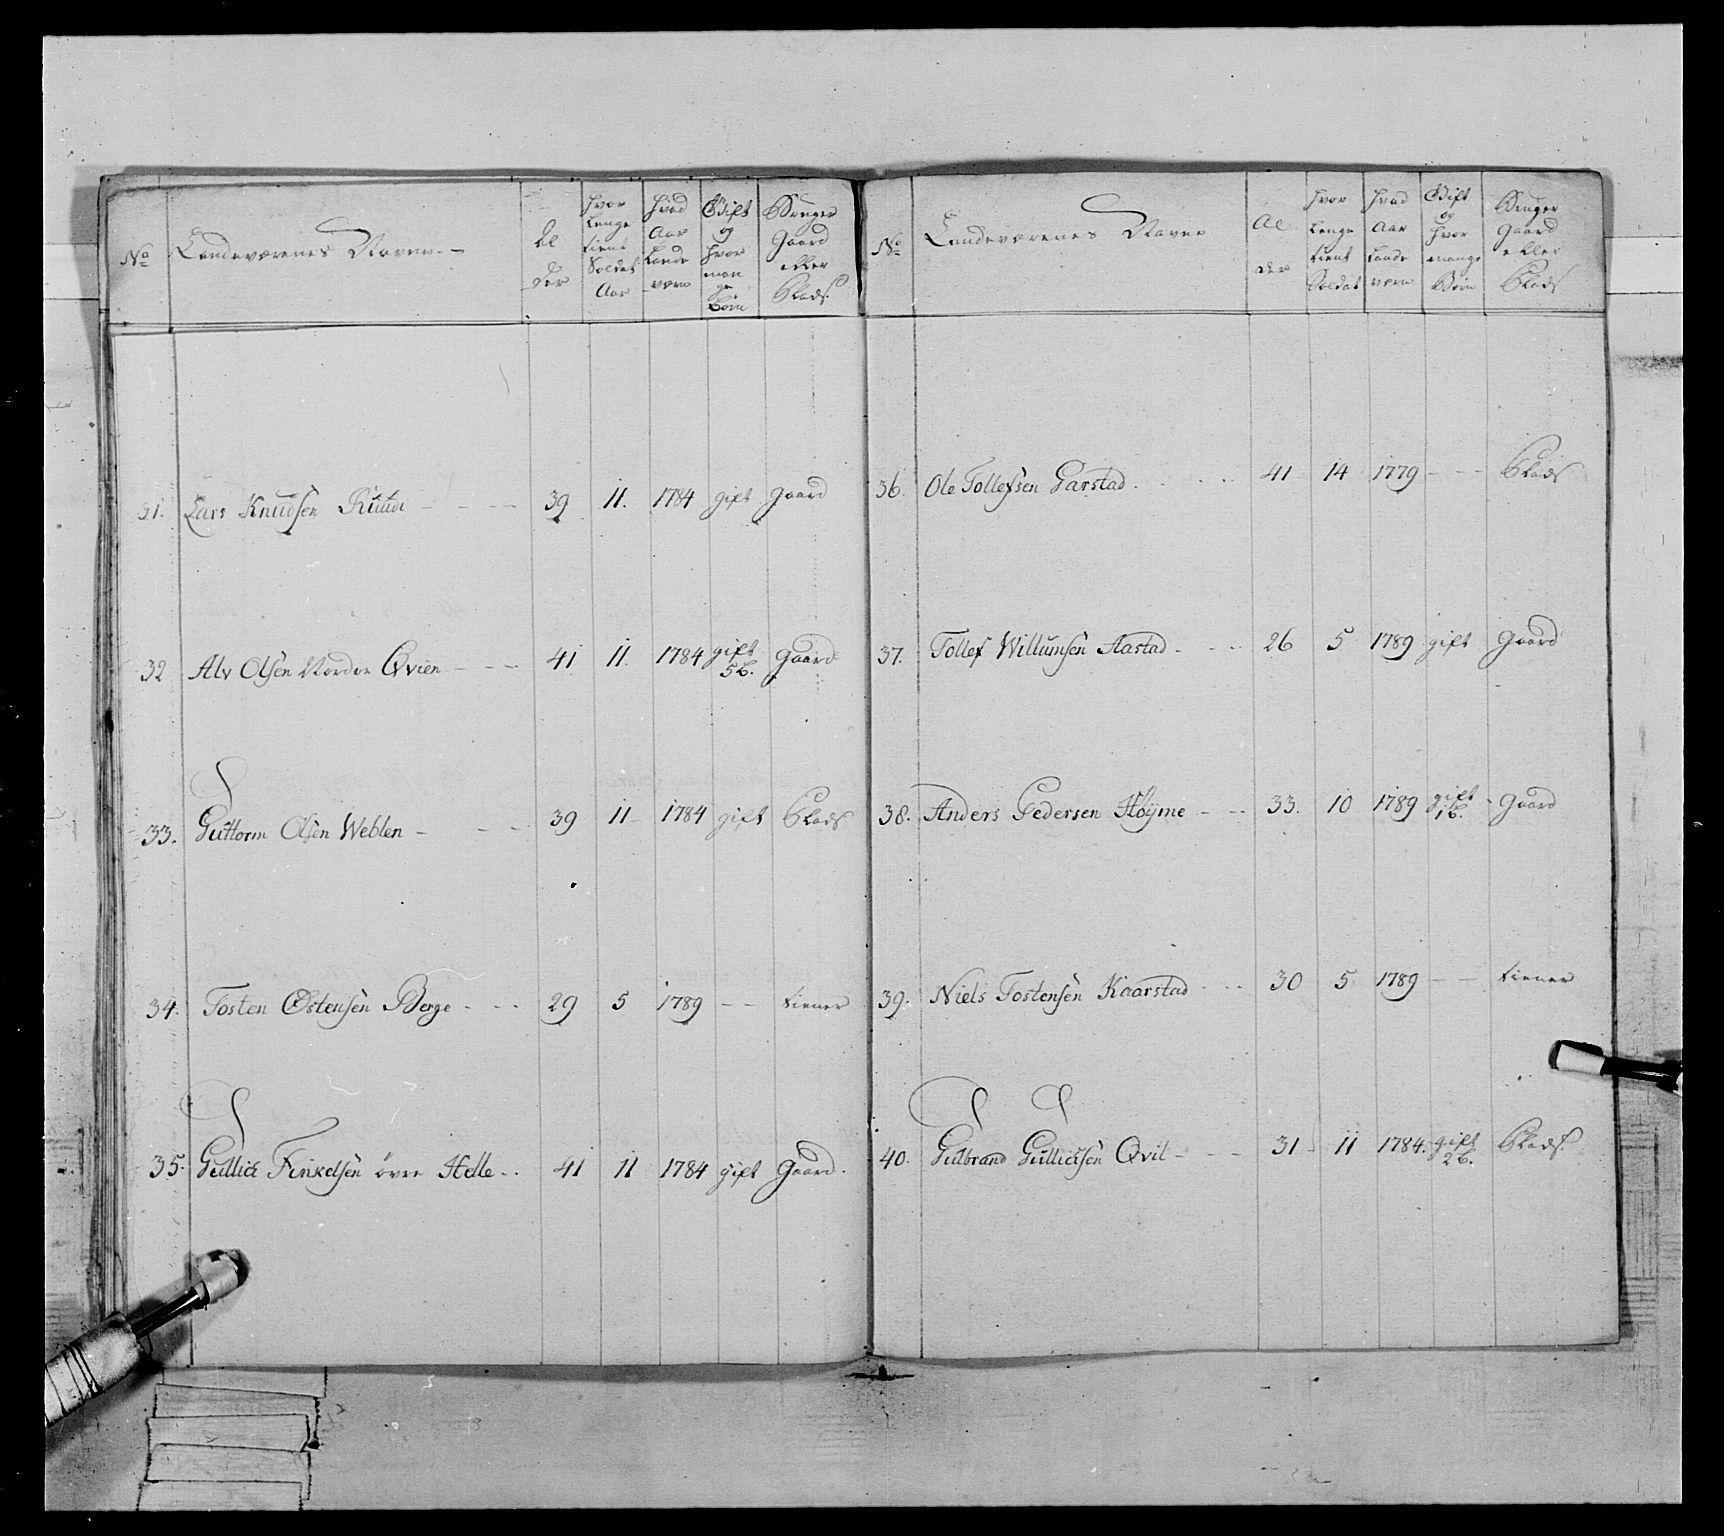 No
Landeværenes Navne
Al
der
hvor
lenge
tient
Soldat
Aar
hvad
Aar
Lande
værn
Gift
og
hvor
man
ge
Børn
Bruger
Gaard
eller
Plads
31. Lars Knudsen Ruude 39 11. 1784 gift gaard
32 Alv Olsen Nordre Qvien 41 11. 1784 gift 5b. Gaard
33. Guttorm Olsen Weblen 39 11 1784 gift Plads
34. Tosten Østensen Berge 29 5 1789 tiener
35. Gullick Finkelsen övre Helle 41 11 1784 gift Gaard.
No
Landeværenes Navne
Al
der
hvor
lenge
tient
Soldat
hvad
Aar
Lande
værn
Gift
og
hvor
mange
Børn
Bruger
Gaard
eller
Plads
36. Ole Tollefsen Garstad 41 14 1779 Plads
37. Tollef Willumsen Aastad 26 5 1789 gift gaard
38. Anders Pedersen Høyme 33. 10 1789 gift 1b. gaard
39. Niels Tostensen Kaarstad 30 5 1789 tiener
40. Gulbrand Gullicksen Qvil 31 11 1784. gift 2b. Plads.